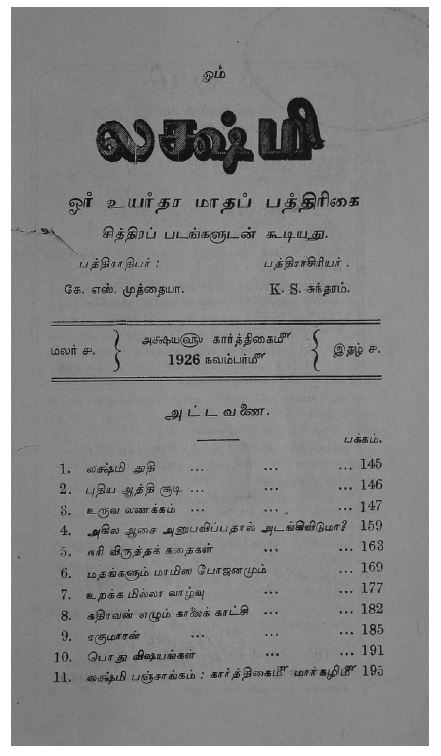 ஓம்
லக்ஷ்மி
ஓர் உயர்தர மாதப் பத்திரிகை
சித்திரப் படங்களுடன் கூடியது.
பத்திராதிபர் : பத்திராசிரியர் .
கே. எஸ். முத்தையா. K. S. சுந்தரம்.
மலர் ச. அக்ஷய௵ கார்த்திகை௴ இதழ் ச.
1926 நவம்பர்௴
அட்டவணை.
பக்கம்.
1. லக்ஷ்மி துதி ... ... ... 145
2. புதிய ஆத்தி சூடி ... ... ... 146
3. உருவ வணக்கம் ... ... ... 147
4. அகில ஆசை அனுபவிப்பதால் அடங்கிவிடுமா? 159
5. நரி விருத்தக் கதைகள் ... ... 163
6. மதங்களும் மாமிஸ போஜனமும் ... 169
7. உறக்க மில்லா வாழ்வு ... ... 177
8. கதிரவன் எழும் காலைக் காட்சி ... ... 182
9. ரகுமாரன் ... ... ... 185
10. பொது விஷயங்கள் ... ... 191
11. லக்ஷ்மி பஞ்சாங்கம் : கார்த்திகை௴ மார்கழி௴ 195